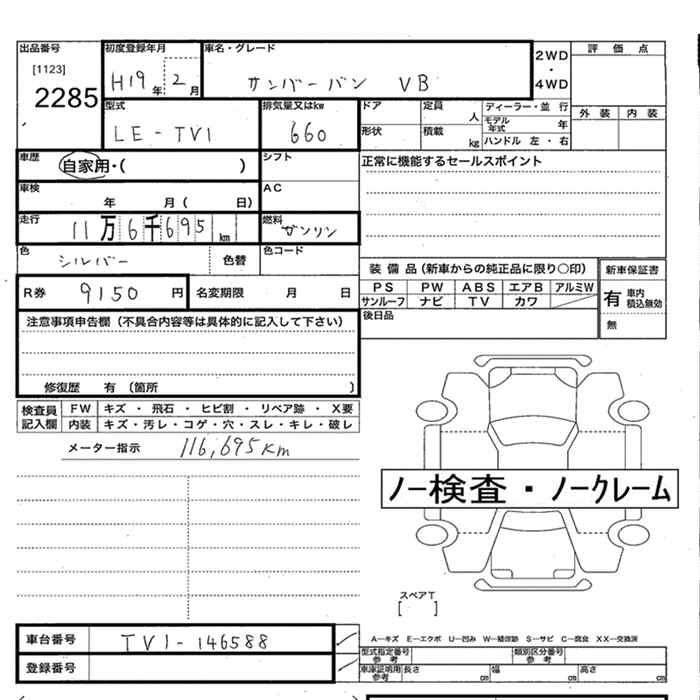 出品番号 初度登録年月 車名・グレード 2WD・4WD 評価点
[1123] H19年 2月 サンバーバン VB
2285 外装 内装
型式 排気量又はkw ドア 定員 人 ディーラー・並行
LE-TV1 660 形状 積載 kg モデル年式 年
ハンドル 左・右
車歴 自家用・( ) シフト 正常に機能するセールスポイント
車検 年 月( 日) AC
走行 11万6千695km 燃料 ガソリン
色 シルバー 色替 色コード
装備品(新車からの純正品に限り○印) 新車保証書
R券 9150円 名変期限 月 日 PS PW ABS エアB アルミW 有 車内積込無効
サンルーフ ナビ TV カワ
注意事項申告欄(不具合内容等は具体的に記入して下さい) 後日品 無
修復歴 有 (箇所 )
検査員記入欄 FW キズ・飛石・ヒビ割・リペア跡・X要
内装 キズ・汚レ・コゲ・穴・スレ・キレ・破レ
メーター指示 116,695Km
ノー検査・ノークレーム
スペアT
[ ]
車台番号 TV1-146588 A―キズ E―エクボ U―凹み W―補修跡 S―サビ C―腐食 XX―交換済
型式指定番号 参考 類別区分番号 参考
登録番号 車庫証明用 参考 長さ cm 幅 cm 高さ cm